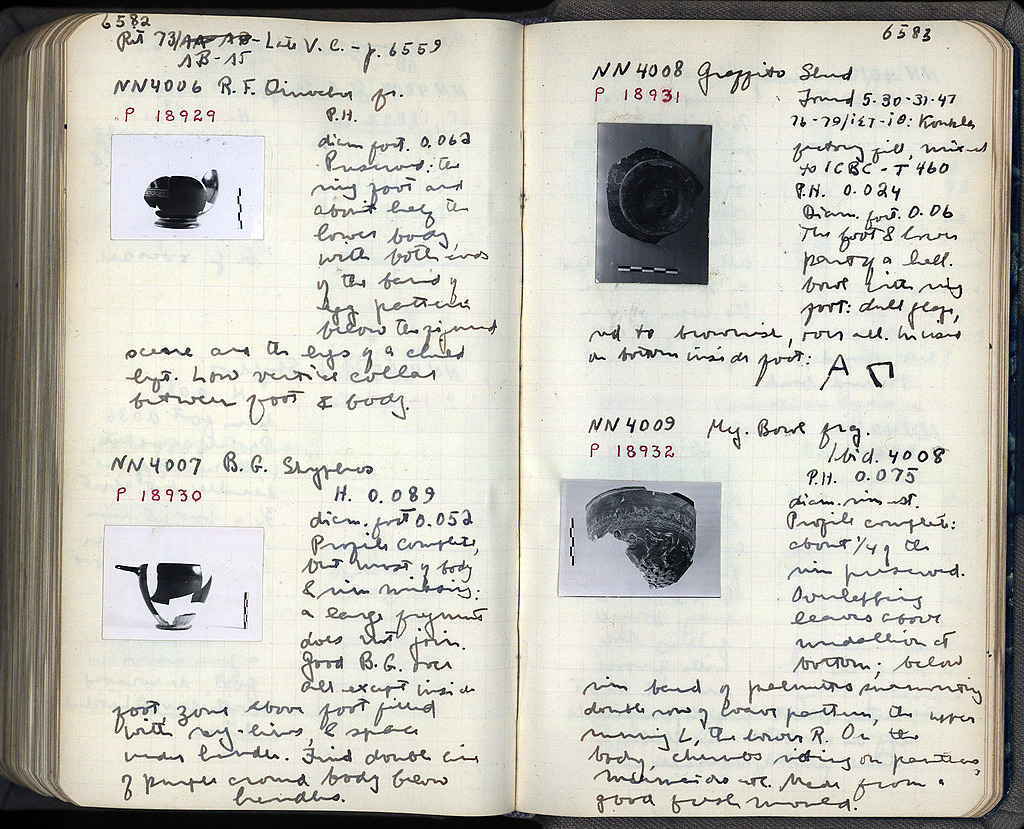 6582
Pit 73/ AB - Late V. C. - p. 6559
ΛB - ΛΓ
NN4006 R.F. Oinochoe fr.
P 18929
P.H.
diam. foot. 0.062
Preserved: the
ring foot and
about half the
lower body,
with both ends
of the band of
egg pattern
below the figured
scene and the legs of a clad
left. Low vertical collar
between foot & body.
NN4007 B.G. Skyphos
P 18930
H. 0.089
diam. foot 0.052
Profile complete,
but most of body
& rim missing:
a large fragment
does not join.
Good B.G. over
all except inside
foot zone above foot filled
with ray-lines, & space
under handle. Fired double line
of purple around body below
handles.
6583
NN4008 Graffito Sherd
P 18931
Found 5-30-31-47
76-79/ : Komklos
factory fill, mixed
to 1C BC - T 460
P.H. 0.024
Diam. foot. 0.06
The foot & lower
part of a hell.
bowl with ring
foot: dull glaze,
red to brownish, over all. Incised
on bottom inside foot: Α Π
NN4009 Meg. Bowl frg.
P 18932
Ibid. 4008
P.H. 0.075
diam. rim est.
Profile complete:
about 1/4 of the
rim preserved.
Overlapping
leaves above
medallion at
bottom; below
rim band of palmettes surmounting
double row of wave pattern, the upper
running L, the lower R. On the
body, cherubs riding on panthers,
etc. Made from a
good fresh mould.